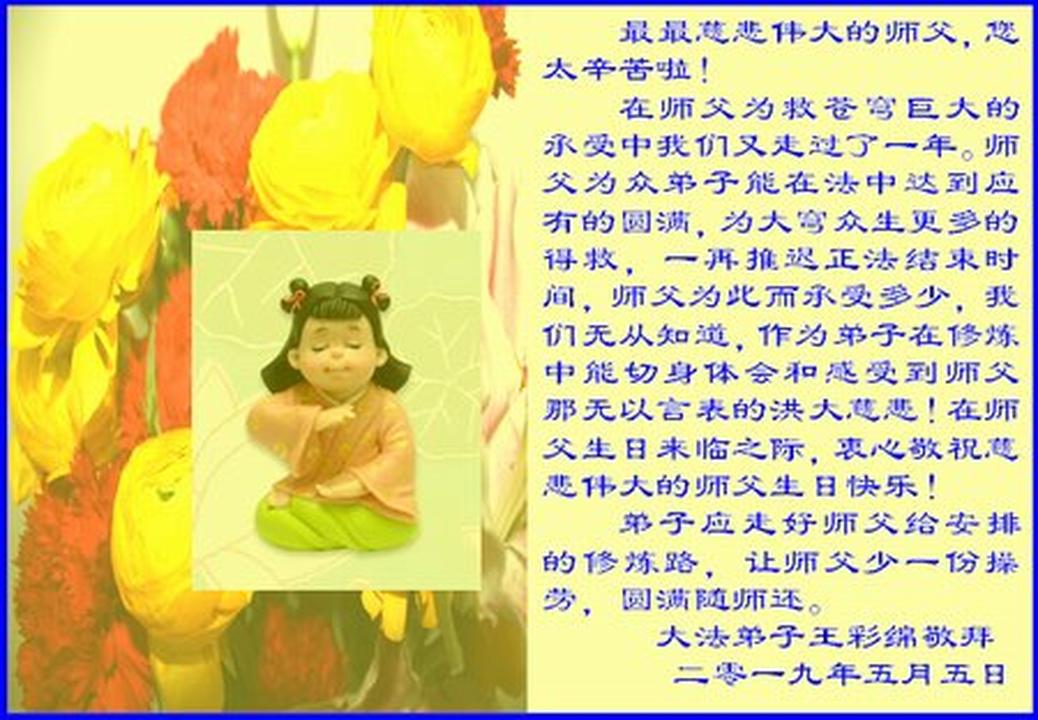 最最慈悲伟大的师父，您
太辛苦啦！
在师父为救苍穹巨大的
承受中我们又走过了一年。师
父为众弟子能在法中达到应
有的圆满，为大穹众生更多的
得救，一再推迟正法结束时
间，师父为此而承受多少，我
们无从知道，作为弟子在修炼
中能切身体会和感受到师父
那无以言表的洪大慈悲！在师
父生日来临之际，衷心敬祝慈
悲伟大的师父生日快乐！
弟子应走好师父给安排
的修炼路，让师父少一份操
劳，圆满随师还。
大法弟子王彩绵敬拜
二零一九年五月五日